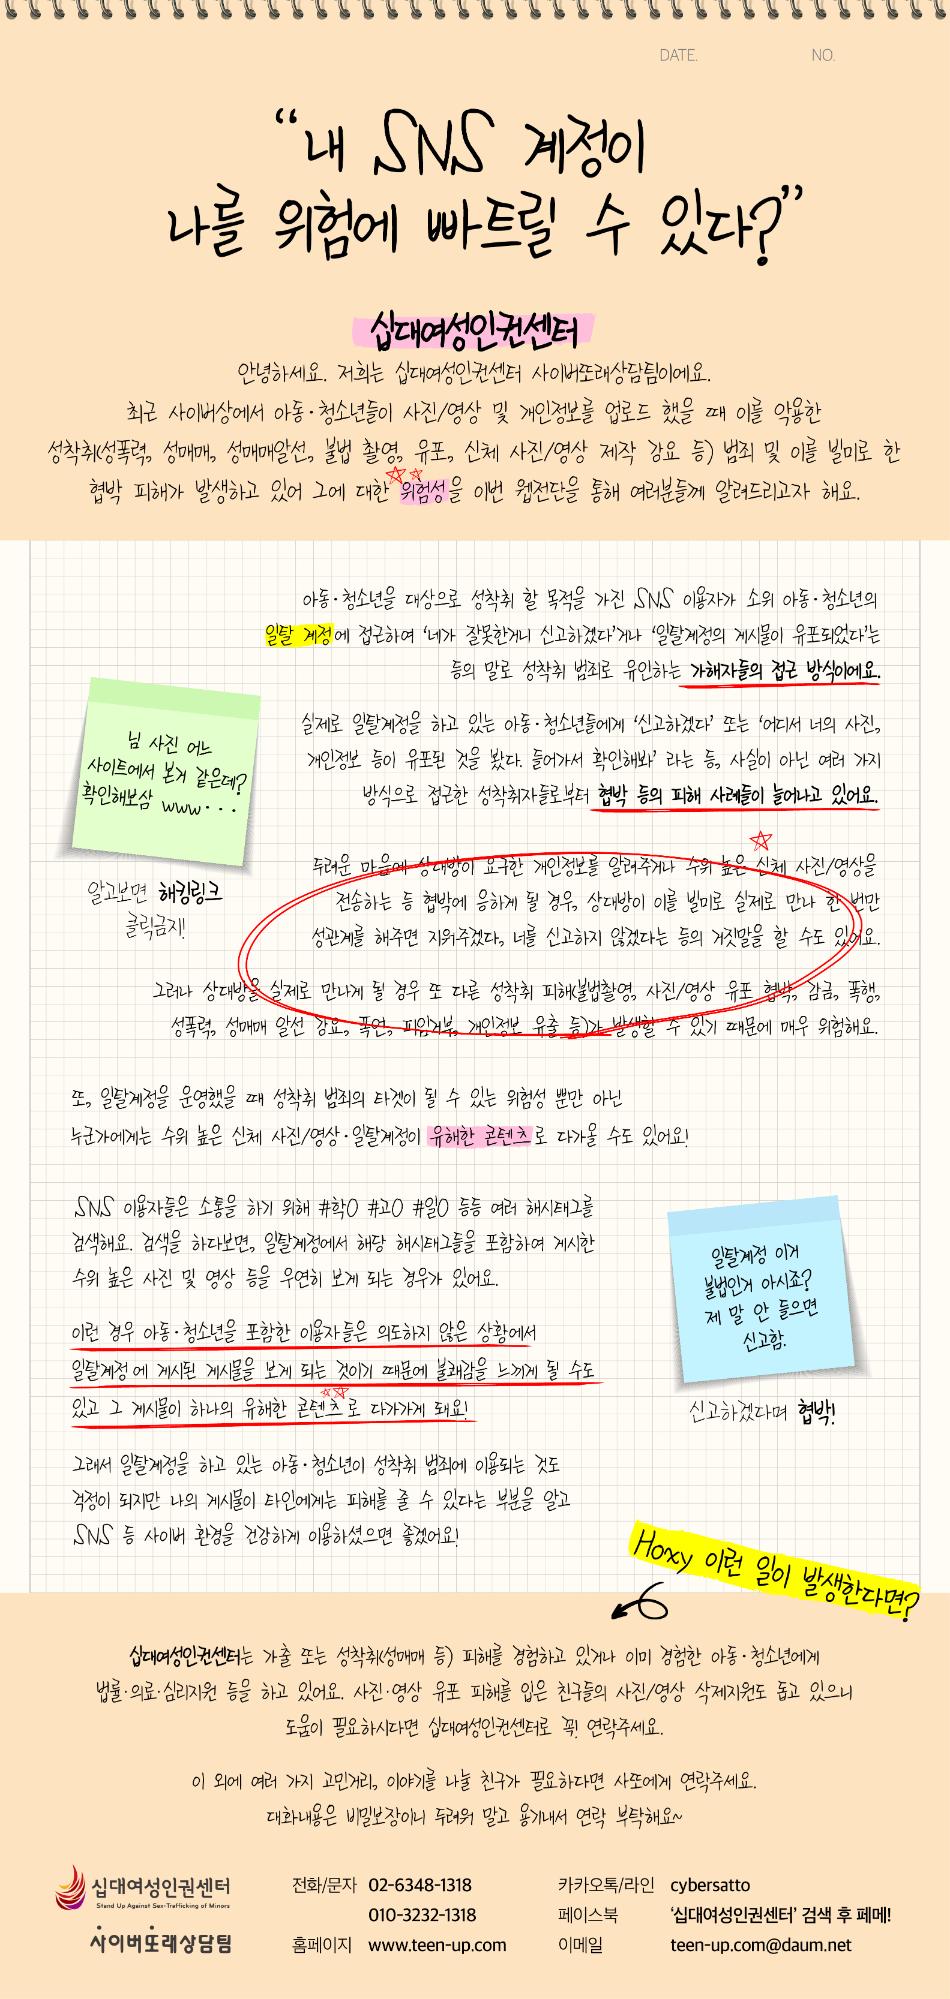 DATE. NO.
“내 SNS 계정이
나를 위험에 빠트릴 수 있다?”
십대여성인권센터
안녕하세요. 저희는 십대여성인권센터 사이버또래상담팀이에요.
최근 사이버상에서 아동·청소년들이 사진/영상 및 개인정보를 업로드 했을 때 이를 악용한
성착취(성폭력, 성매매, 성매매알선, 불법 촬영, 유포, 신체 사진/영상 제작 강요 등) 범죄 및 이를 빌미로 한
협박 피해가 발생하고 있어 그에 대한 위험성을 이번 웹전단을 통해 여러분들께 알려드리고자 해요.
아동·청소년을 대상으로 성착취 할 목적을 가진 SNS 이용자가 소위 아동·청소년의
일탈 계정에 접근하여 ‘네가 잘못한거니 신고하겠다’거나 ‘일탈계정의 게시물이 유포되었다’는
등의 말로 성착취 범죄로 유인하는 가해자들의 접근 방식이에요.
실제로 일탈계정을 하고 있는 아동·청소년들에게 ‘신고하겠다’ 또는 ‘어디서 너의 사진,
개인정보 등이 유포된 것을 봤다. 들어가서 확인해봐’ 라는 등, 사실이 아닌 여러 가지
방식으로 접근한 성착취자들로부터 협박 등의 피해 사례들이 늘어나고 있어요.
님 사진 어느
사이트에서 본거 같은데?
확인해보삼 www···
알고보면 해킹링크
클릭금지!
두려운 마음에 상대방이 요구한 개인정보를 알려주거나 수위 높은 신체 사진/영상을
전송하는 등 협박에 응하게 될 경우, 상대방이 이를 빌미로 실제로 만나 한 번만
성관계를 해주면 지워주겠다, 너를 신고하지 않겠다는 등의 거짓말을 할 수도 있어요.
그러나 상대방을 실제로 만나게 될 경우 또 다른 성착취 피해(불법촬영, 사진/영상 유포 협박, 감금, 폭행,
성폭력, 성매매 알선 강요, 폭언, 피임거부, 개인정보 유출 등)가 발생할 수 있기 때문에 매우 위험해요.
또, 일탈계정을 운영했을 때 성착취 범죄의 타겟이 될 수 있는 위험성 뿐만 아닌
누군가에게는 수위 높은 신체 사진/영상·일탈계정이 유해한 콘텐츠로 다가올 수도 있어요!
SNS 이용자들은 소통을 하기 위해 #학O #고O #일O 등등 여러 해시태그를
검색해요. 검색을 하다보면, 일탈계정에서 해당 해시태그들을 포함하여 게시한
수위 높은 사진 및 영상 등을 우연히 보게 되는 경우가 있어요.
이런 경우 아동·청소년을 포함한 이용자들은 의도하지 않은 상황에서
일탈계정에 게시된 게시물을 보게 되는 것이기 때문에 불쾌감을 느끼게 될 수도
있고 그 게시물이 하나의 유해한 콘텐츠로 다가가게 돼요!
그래서 일탈계정을 하고 있는 아동·청소년이 성착취 범죄에 이용되는 것도
걱정이 되지만 나의 게시물이 타인에게는 피해를 줄 수 있다는 부분을 알고
SNS 등 사이버 환경을 건강하게 이용하셨으면 좋겠어요!
일탈계정 이거
불법인거 아시죠?
제 말 안 들으면
신고함.
신고하겠다며 협박!
Hoxy 이런 일이 발생한다면?
십대여성인권센터는 가출 또는 성착취(성매매 등) 피해를 경험하고 있거나 이미 경험한 아동·청소년에게
법률·의료·심리지원 등을 하고 있어요. 사진·영상 유포 피해를 입은 친구들의 사진/영상 삭제지원도 돕고 있으니
도움이 필요하시다면 십대여성인권센터로 꼭! 연락주세요.
이 외에 여러 가지 고민거리, 이야기를 나눌 친구가 필요하다면 사또에게 연락주세요.
대화내용은 비밀보장이니 두려워 말고 용기내서 연락 부탁해요~
십대여성인권센터
Stand Up Against Sex-Trafficking of Minors
사이버또래상담팀
전화/문자 02-6348-1318
010-3232-1318
홈페이지 www.teen-up.com
카카오톡/라인 cybersatto
페이스북 ‘십대여성인권센터’ 검색 후 페메!
이메일 teen-up.com@daum.net